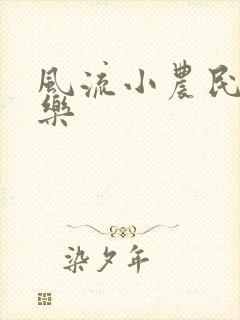 風流小農民
樂
染夕年